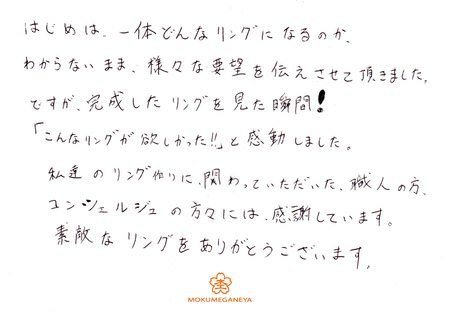 はじめは、一体どんなリングになるのか、
わからないまま、様々な要望を伝えさせて頂きました。
ですが、完成したリングを見た瞬間!
「こんなリングが欲しかった!!」と感動しました。
私達のリング作りに、関わっていただいた、職人の方、
コンシェルジュの方々には、感謝しています。
素敵なリングをありがとうございます。
MOKUMEGANEYA